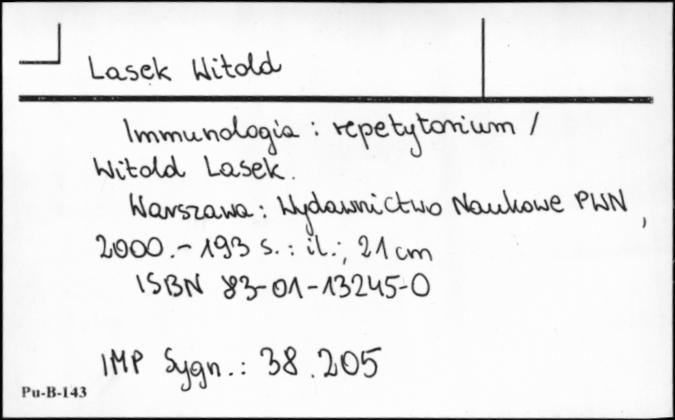 Lasek Witold
Immunologia : repetytorium /
Witold Lasek.
Warszawa : Wydawnictwo Naukowe PWN,
2000. - 193 s. : il. ; 21 cm
ISBN 83-01-13245-0
IMP Sygn. : 38.205
Pu-B-143